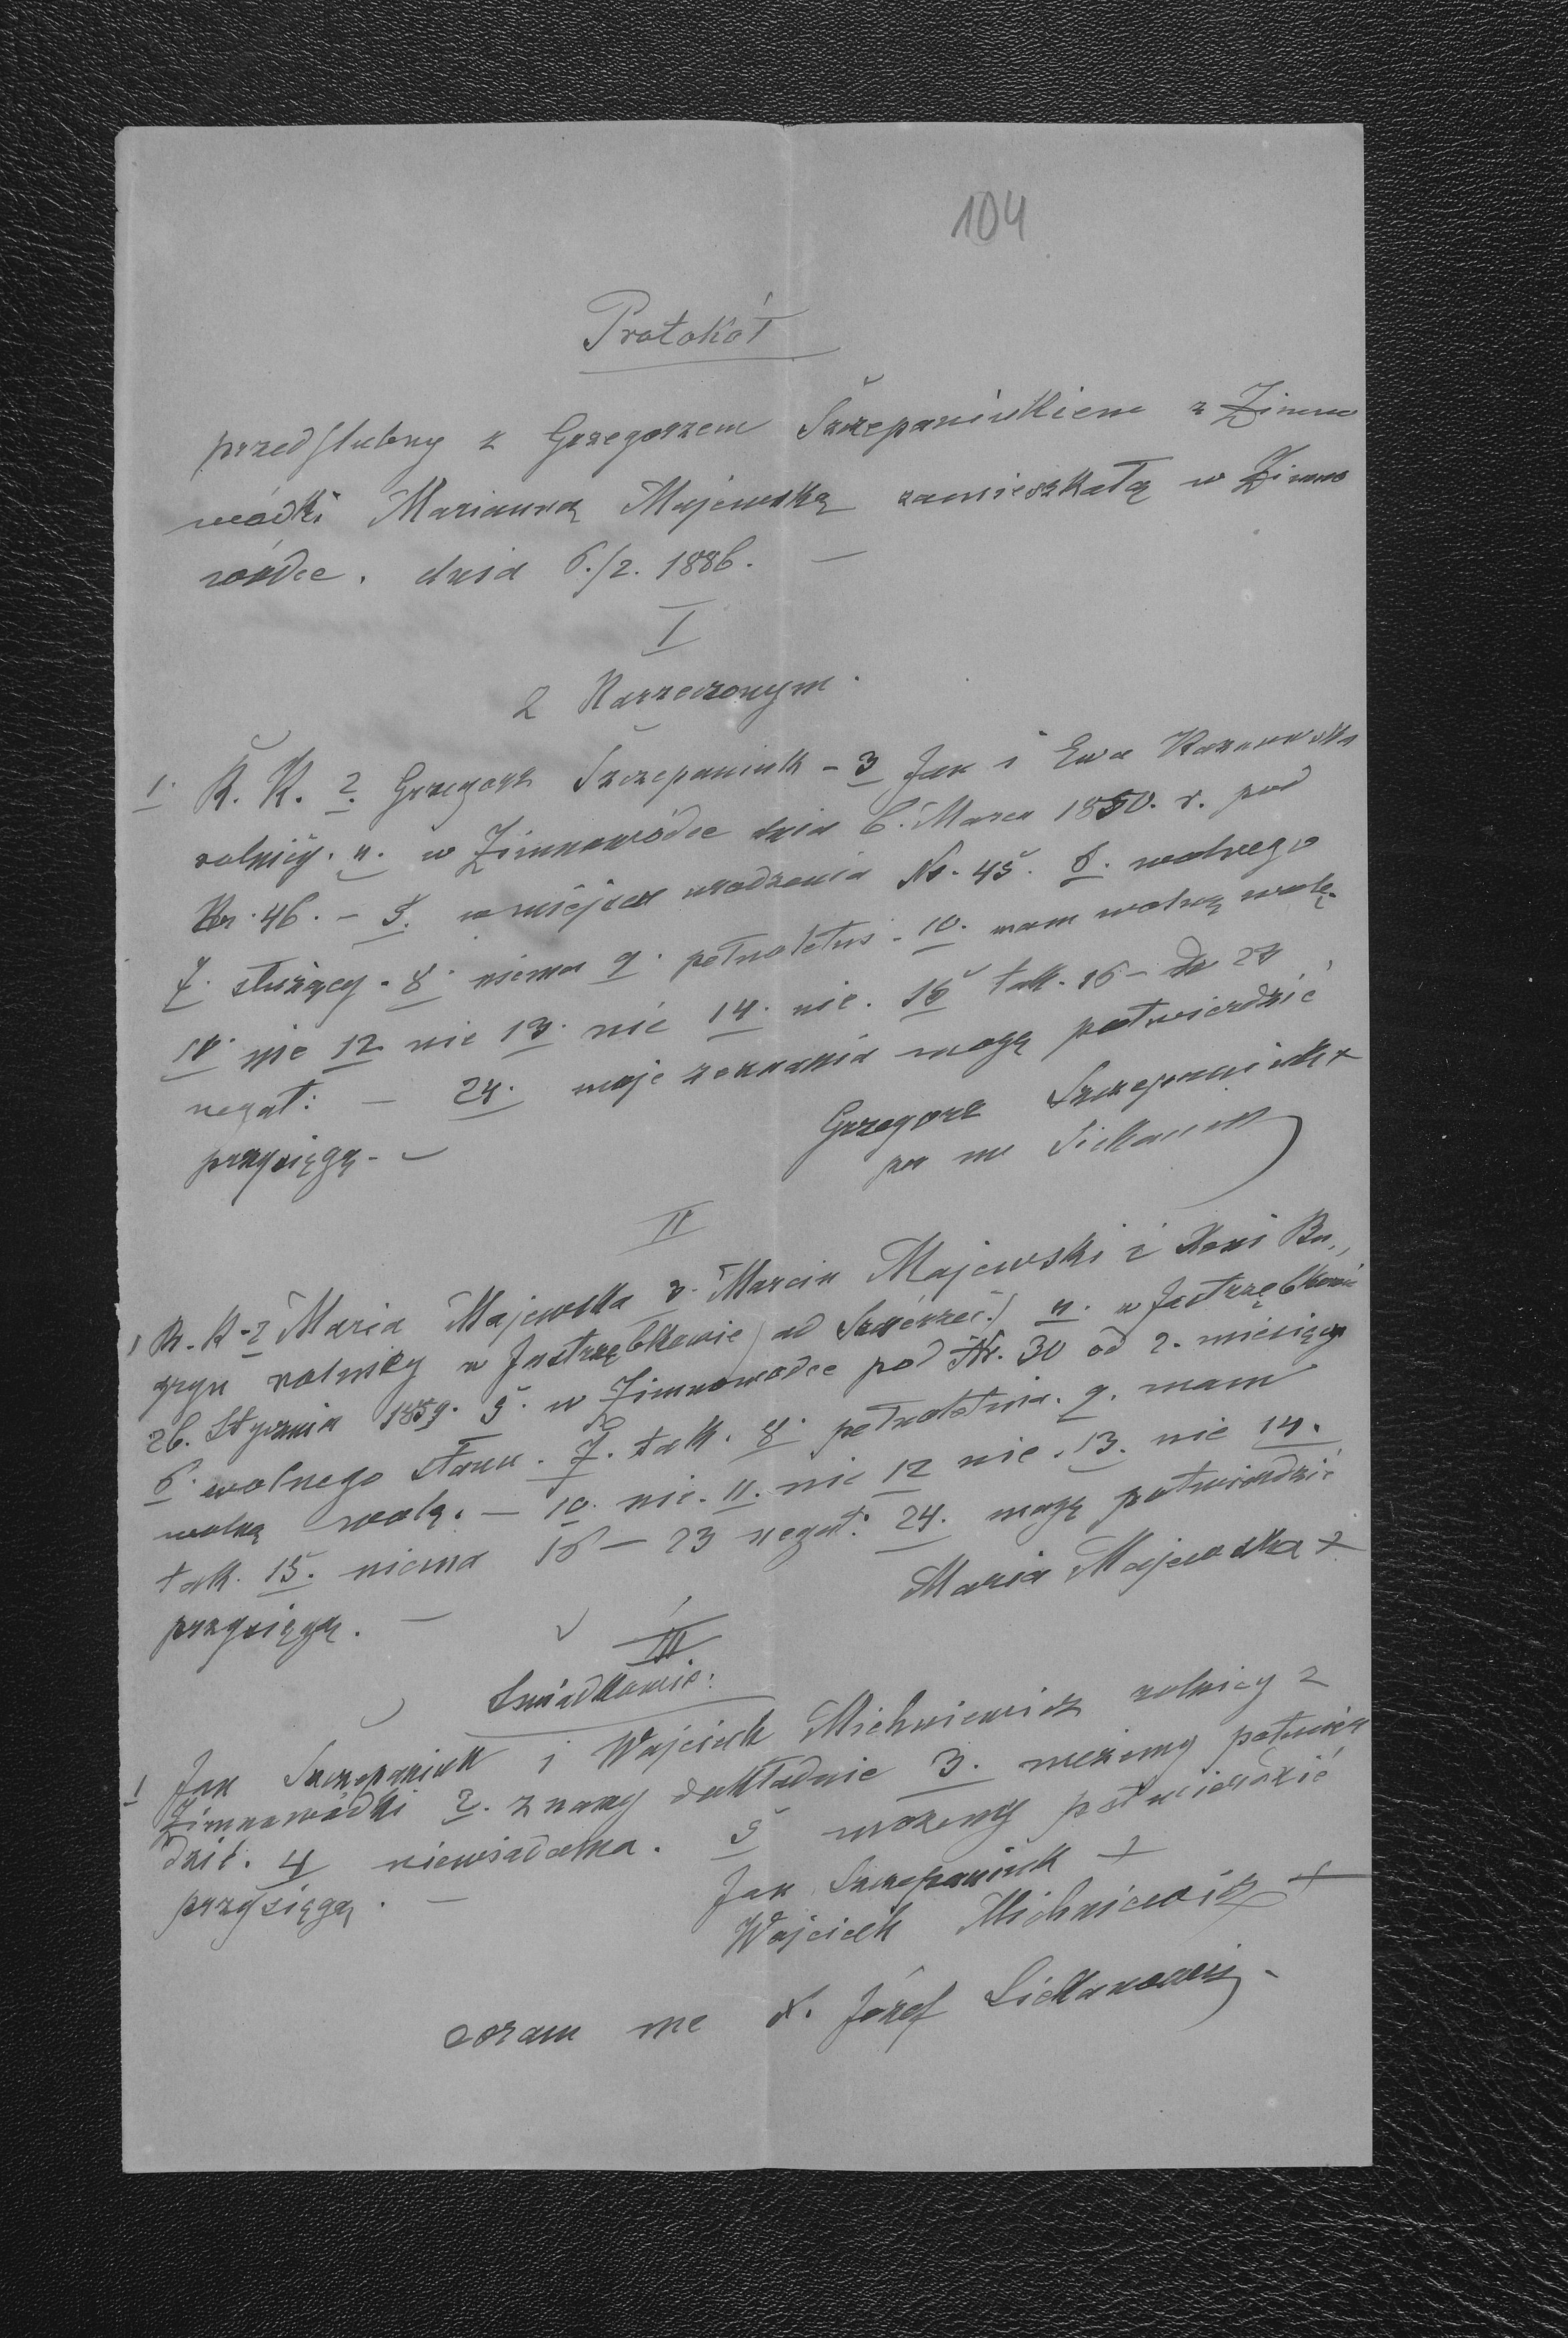 104
Protokół
przedślubny z Grzegorzem Szczepaniukiem z Zimno
wódki Marianną Majewską zamieszkałą w Zimno
wódce. dnia 6./2. 1886. —
I
Z Narzeczonym.
1. R. K. 2. Grzegorz Szczepaniuk - 3 Jan i Ewa
rolnicy. 4. w Zimnowódce dnia 6. Marca 1850. r. pod
Nr. 46. - 5. w miejscu urodzenia No. 45. 6. wolnego
7. służący. 8. niema 9. pełnoletni. 10. mam wolną wolę.
11. nie 12 nie 13. nie 14. nie. 15 tak. 16 - do 23
negat: — 24. moje zeznania mogę potwierdzić
przysięgą. -
Grzegorz Szczepaniuk +
II
1 R. K - 2 Maria Majewska 3. Marcin Majewski i
rolnicy w Jastrzębkowie ( ad Szczerzec.) 4. w Jastrzębkowie
26. Stycznia 1859. 5. w Zimnowodce pod Nr. 30 od 2. miesięcy
6. wolnego stanu. 7. tak. 8. pełnoletnia. 9. mam
wolną wolę. — 10. nie. 11. nie 12 nie. 13. nie 14.
tak. 15. niema 16 — 23 negat: 24. mogę potwierdzić
przysięgą. —
Maria Majewska +
III
Świadkowie:
1 Jan Szczepaniuk i Wojciech Michniewicz rolnicy z
Zimnowódki 2. znamy dokładnie 3. możemy potwier
dzić. 4 niewiadoma. 5 możemy potwierdzić
przysięgą. —
Jan Szczepaniuk +
Wojciech Michniewicz +
coram me X. Józef